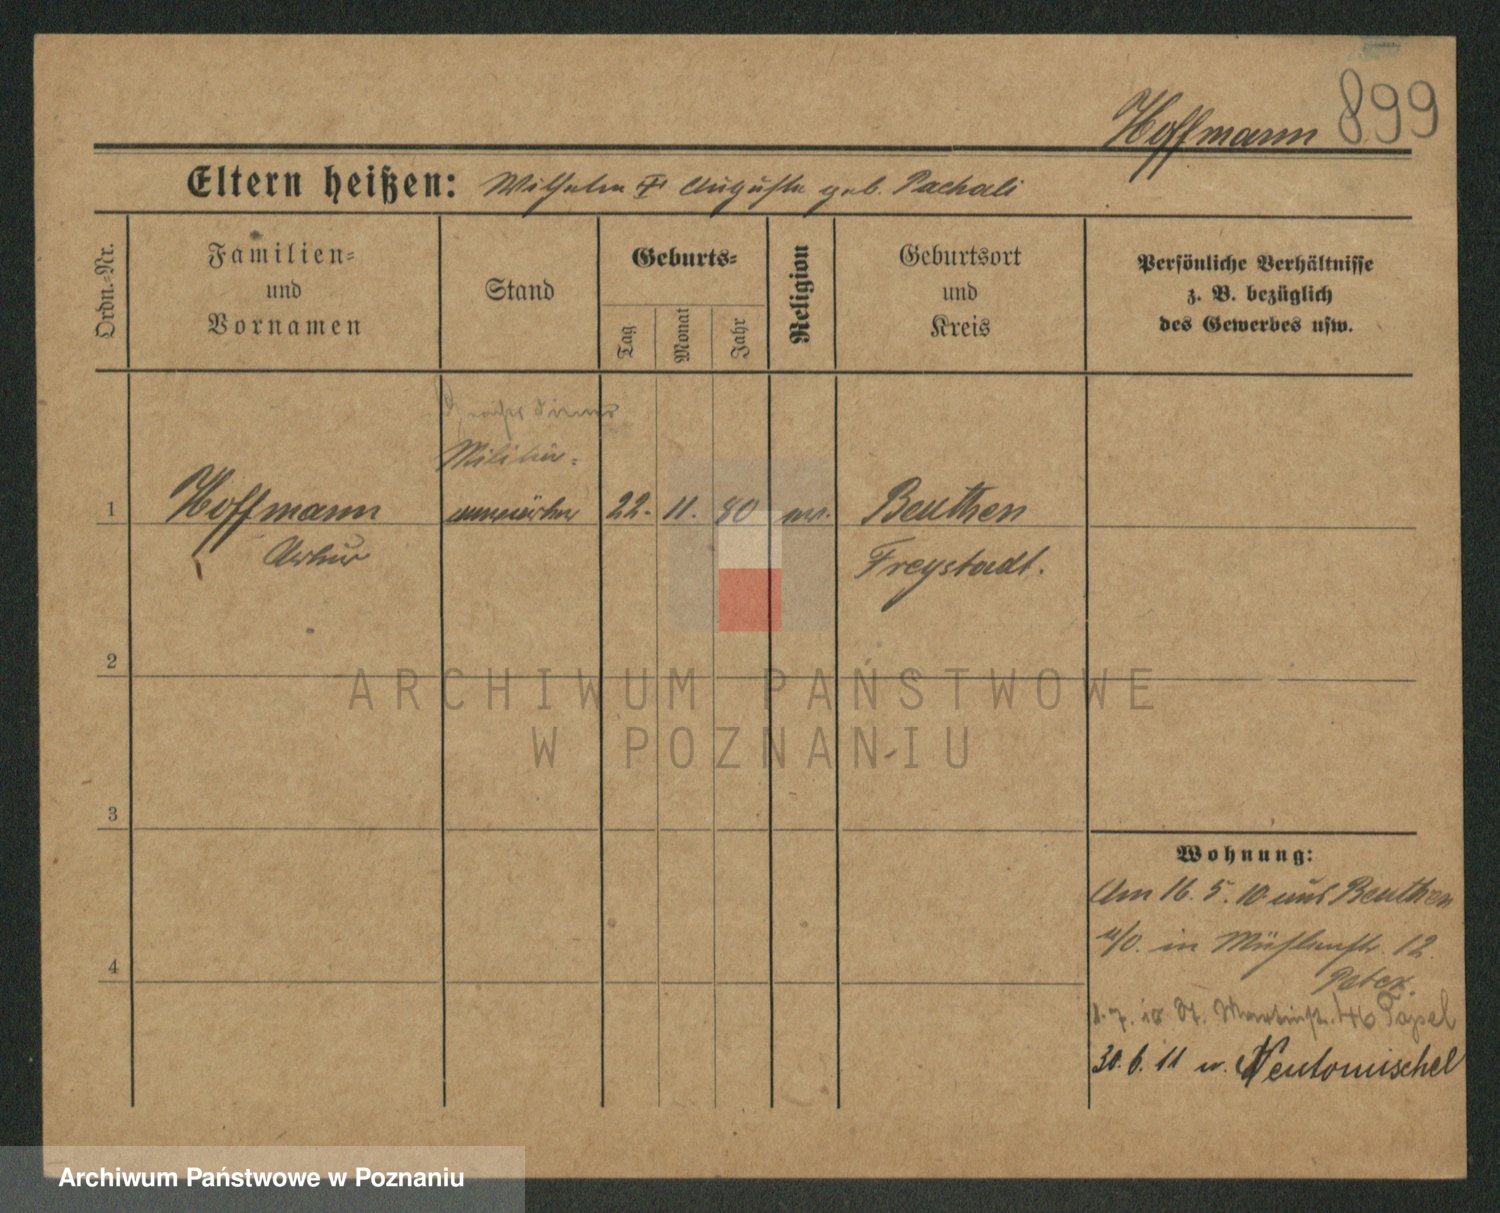 Hoffmann 899
Eltern heißen: Wilhelm Auguste geb. Pachali
Ordn.-Nr.
Familien-
und
Vornamen
Stand
Geburts-
Tag
Monat
Jahr
Religion
Geburtsort
und
Kreis
Persönliche Verhältnisse
z. B. bezüglich
des Gewerbes usw.
Militär-
1 Hoffmann anwärter 22. 11. 80 Beuthen
Arthur Freystadt.
2
ARCHIWUM PAŃSTWOWE
W POZNANIU
3
Wohnung:
Am 16. 5. 10 aus Beuthen
a/O. in Mühlenstr. 12.
4
7. 10 St. Martinstr. 46
30. 6. 11 n. Neutomischel
Archiwum Państwowe w Poznaniu